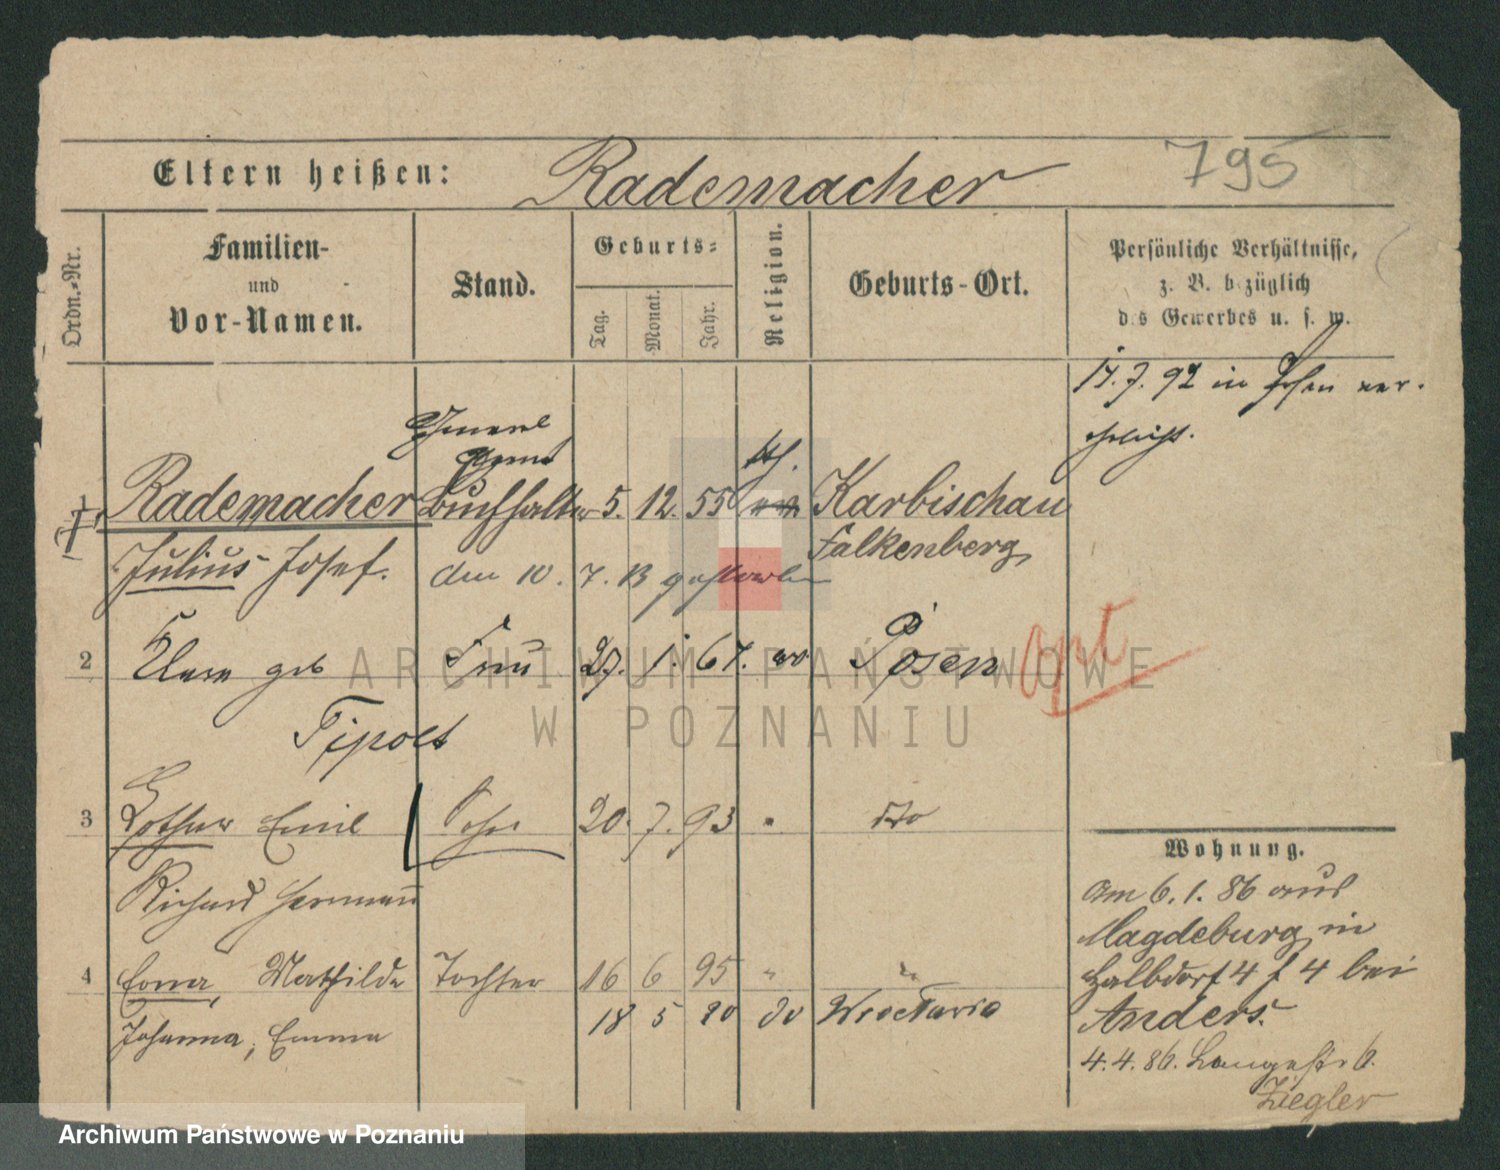 795
Eltern heißen: Rademacher
Ordn.-Nr.
Familien-
und
Vor-Namen.
Stand.
Geburts-
Tag.
Monat.
Jahr.
Religion.
Geburts-Ort.
Persönliche Verhältnisse,
z. B. bezüglich
des Gewerbes u. s. w.
7. 92 in Posen ver-
ehelicht.
General
Agent
kth.
1 Rademacher Buchhalter 5. 12. 55 Karbischau
Falkenberg
Julius Josef. den 10. 7. 13 gestorben
2 geb Frau 27. 1. 67. Posen
Tipolt
3 Lothar Emil Sohn 20. 7. 93 " do
Richard Hermann
4 Erna, Mathilde Tochter 16 6 95 "
18 5 20 do Wroclawia
Johanna, Emma
Wohnung.
Am 6. 1. 86 aus
Magdeburg in
Halbdorf 4 bei
Anders.
4. 4. 86. Langestr 6.
Ziegler
ARCHIWUM PAŃSTWOWE
W POZNANIU
Archiwum Państwowe w Poznaniu